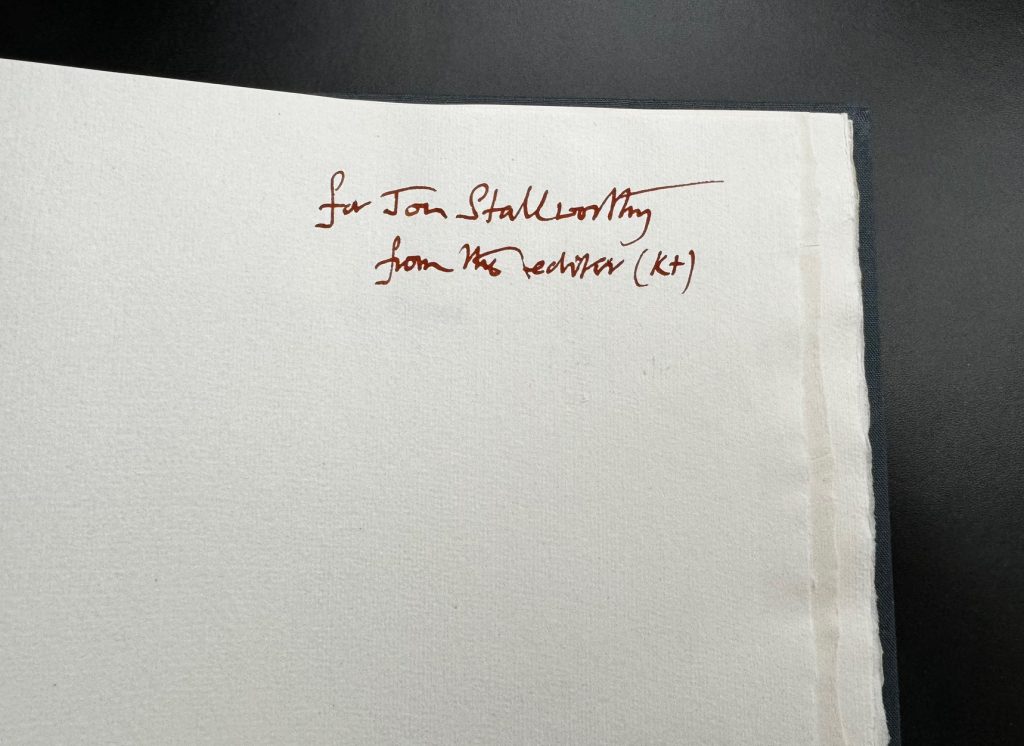 for Jon Stallworthy
from the editor (K+)